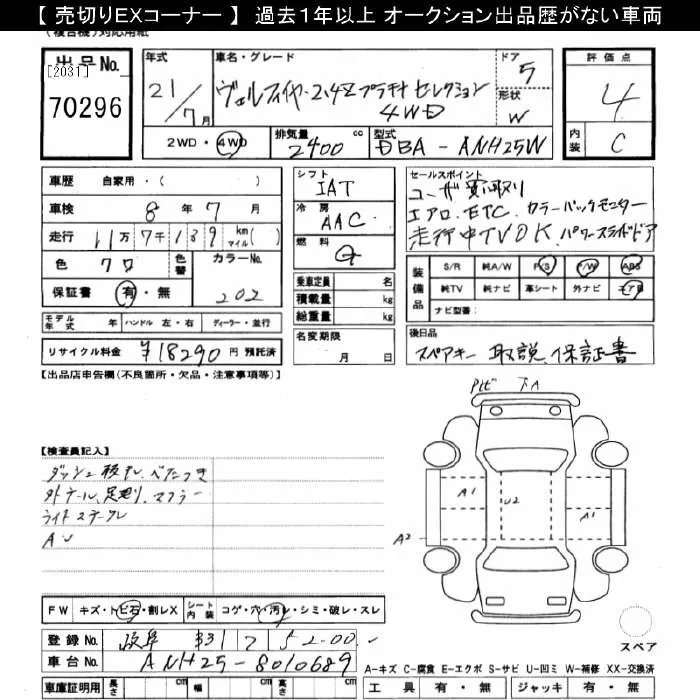 【 売切りEXコーナー 】 過去1年以上 オークション出品歴がない車両
(複合機)対応用紙
出品No.
[2031]
70296
年式
21/7月
車名・グレード
ヴェルファイヤー2.4Z プラチナ セレクション
4WD
ドア
5
形状
W
評価点
4
内装
C
2WD・4WD
排気量
2400
cc
型式
DBA-ANH25W
車歴 自家用・( )
車検 8年 7月
走行 11万 7千 139 km マイル( )
色 クロ
色替
カラーNo.
202
保証書 有・無
モデル年式 年 ハンドル 左・右 ディーラー・並行
リサイクル料金 ¥18290円 預託済
シフト
IAT
冷房
AAC
燃料
G
乗車定員 名
積載量 kg
総重量 kg
名変期限
月 日
セールスポイント
ユーザ買取り
エアロ.ETC. カラーバックモニター
走行中TVOK. パワースライドドア
装備品
S/R 純A/W P/S P/W ABS
純TV 純ナビ 革シート 外ナビ エアB
ナビ型番:
後日品
スペアキー 取説.保証書
【出品店申告欄(不良箇所・欠品・注意事項等)】
【検査員記入】
ダッシュ ベたつき
足廻り、マフラー
AU
A1
U2
A1
A2
スペア
FW キズ・トビ石・割レX
シート内装 コゲ・穴・汚レ・シミ・破レ・スレ
登録No. 岐阜 331 ワ 52-00
車台No. ANH25-8010689
車庫証明用 長さ cm 幅 cm 高さ cm
A-キズ C-腐食 E-エクボ S-サビ U-凹ミ W-補修 XX-交換済
工具 有・無 ジャッキ 有・無